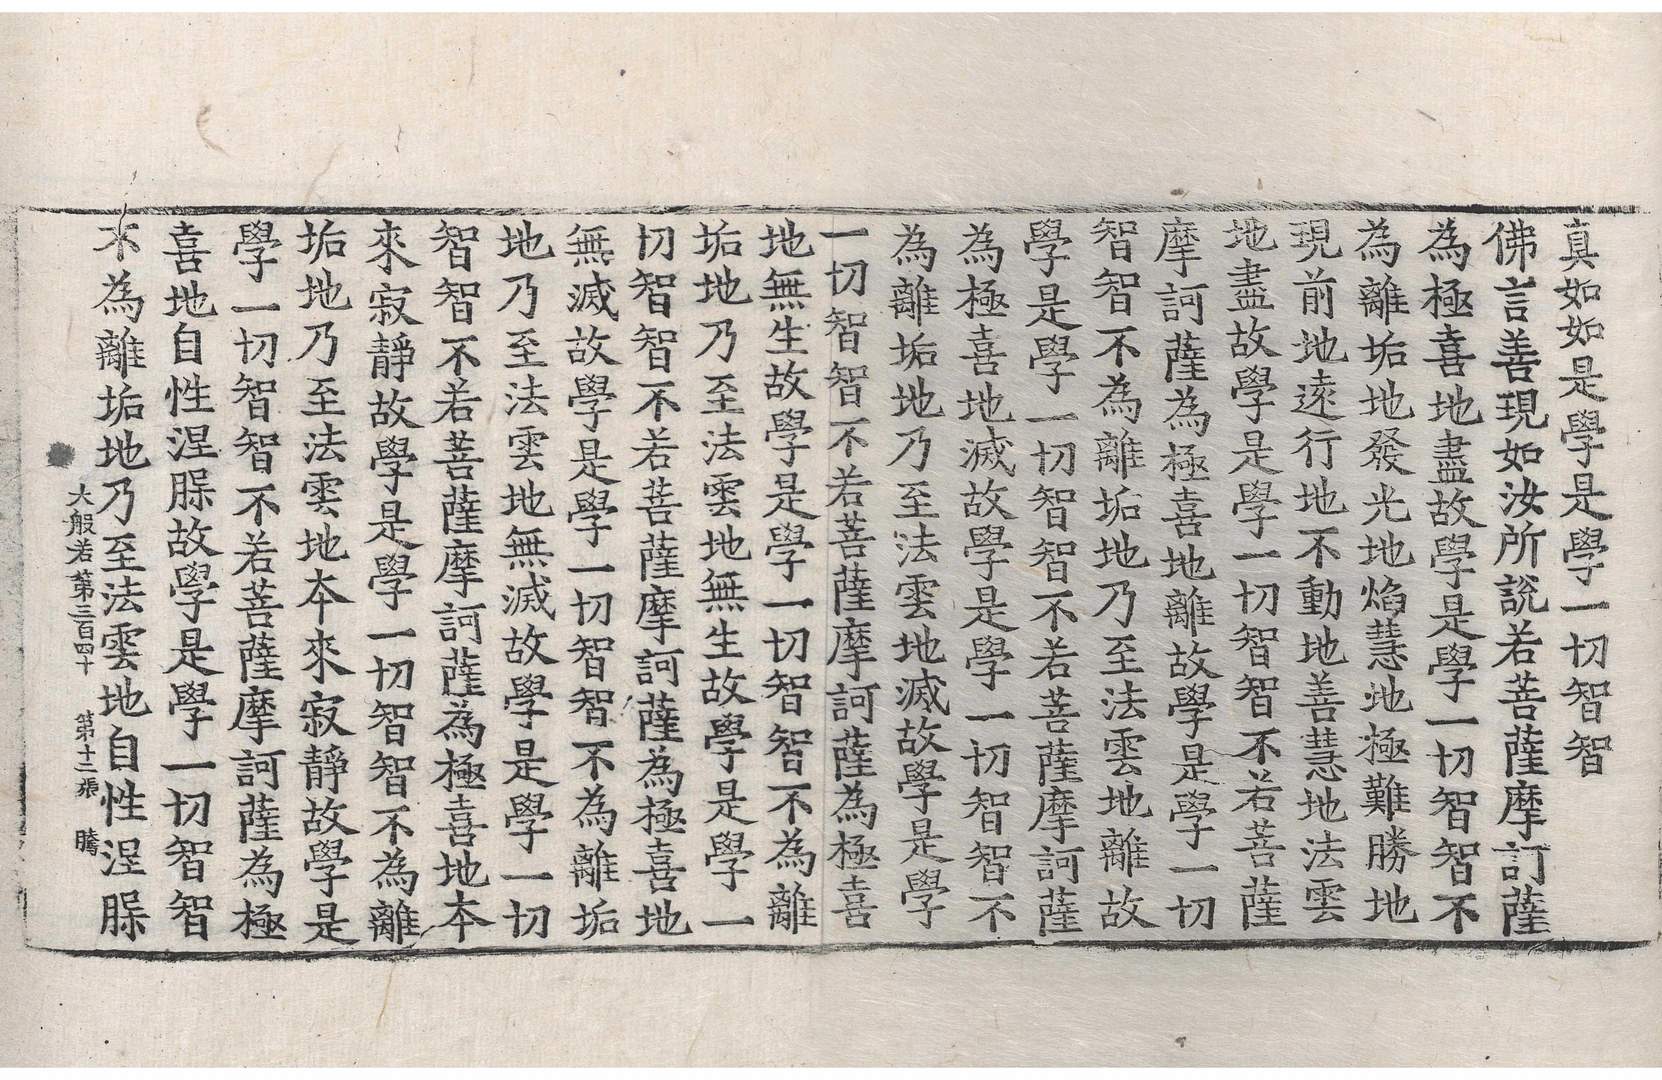 真如如是學是學一切智智
佛言善現如汝所說若菩薩摩訶薩
為極喜地盡故學是學一切智智不
為離垢地發光地焰慧地極難勝地
現前地遠行地不動地善慧地法雲
地盡故學是學一切智智不若菩薩
摩訶薩為極喜地離故學是學一切
智智不為離垢地乃至法雲地離故
學是學一切智智不若菩薩摩訶薩
為極喜地滅故學是學一切智智不
為離垢地乃至法雲地滅故學是學
一切智智不若菩薩摩訶薩為極喜
地無生故學是學一切智智不為離
垢地乃至法雲地無生故學是學一
切智智不若菩薩摩訶薩為極喜地
無滅故學是學一切智智不為離垢
地乃至法雲地無滅故學是學一切
智智不若菩薩摩訶薩為極喜地本
來寂靜故學是學一切智智不為離
垢地乃至法雲地本來寂靜故學是
學一切智智不若菩薩摩訶薩為極
喜地自性涅槃故學是學一切智智
不為離垢地乃至法雲地自性涅槃
大般若第三百四十　第十二張　騰